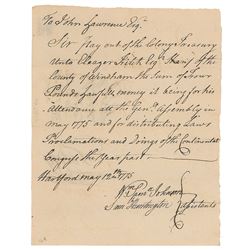 To John Lawrence Esqr
Sir pay out of the Colony Treasury
Unto Eleazer Fitch Esqr of the
County of Windham the Sum of Four
Pounds Lawful money it being for his
Attendance att the Genl Assembly in
may 1775 and for distributing Laws
Proclamations and Doings of the Continental
Congress this Year past
Hartford may 12th 1775
Wm Saml Johnson
Sam Huntington